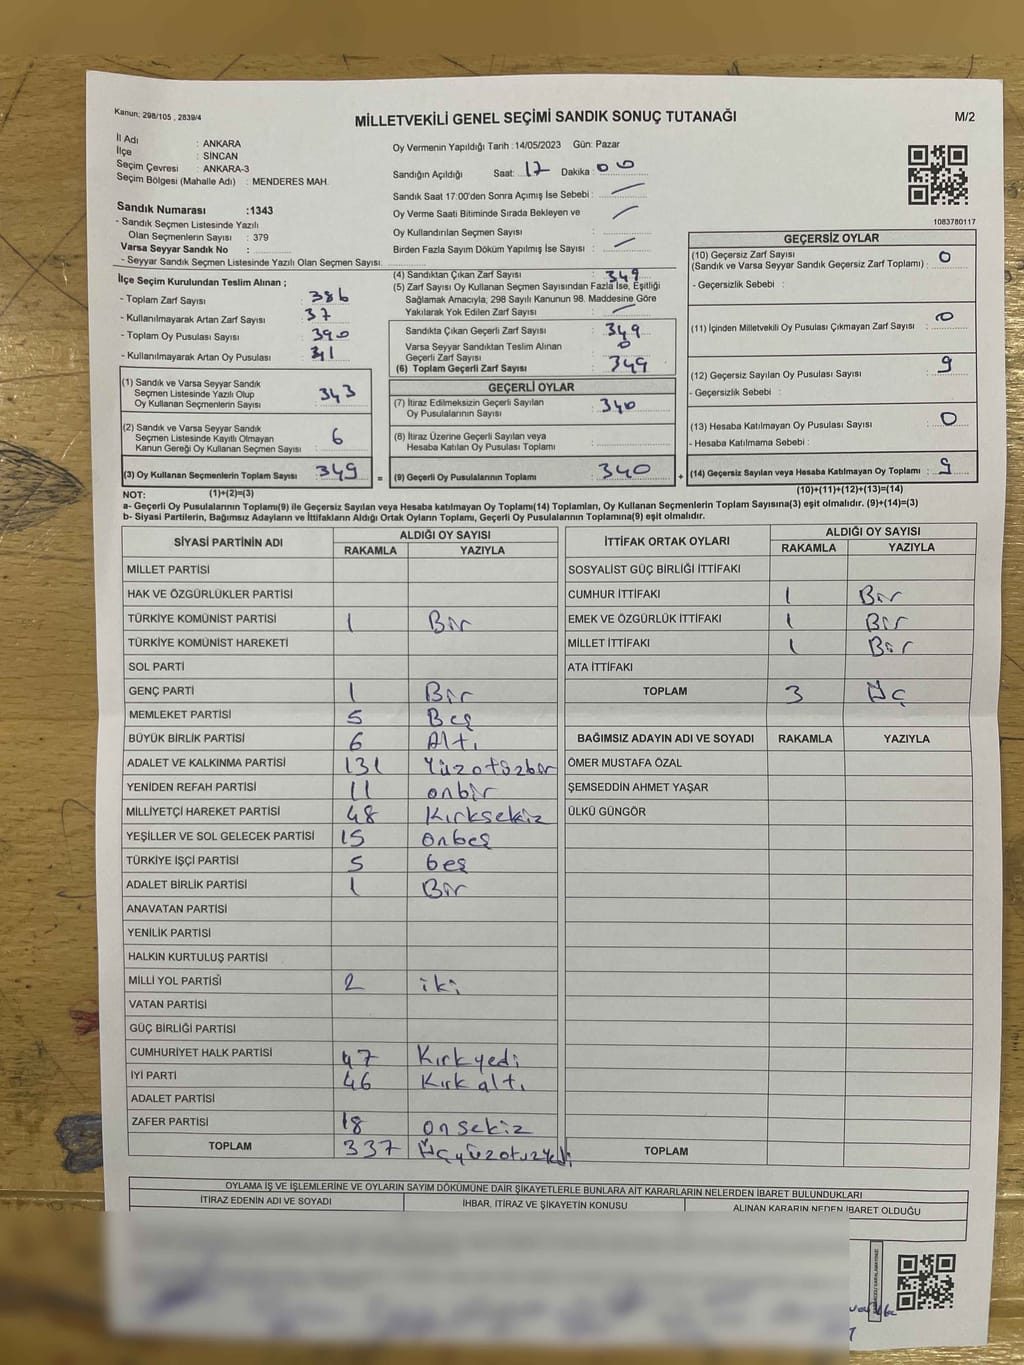 Kanun: 298/105 , 2839/4
MİLLETVEKİLİ GENEL SEÇİMİ SANDIK SONUÇ TUTANAĞI
M/2
İl Adı : ANKARA
İlçe : SİNCAN
Seçim Çevresi : ANKARA-3
Seçim Bölgesi (Mahalle Adı) : MENDERES MAH.
Oy Vermenin Yapıldığı Tarih :14/05/2023 Gün: Pazar
Sandığın Açıldığı Saat: 17 Dakika : 00
Sandık Saat 17:00'den Sonra Açımış İse Sebebi :
Oy Verme Saati Bitiminde Sırada Bekleyen ve
Oy Kullandırılan Seçmen Sayısı :
Birden Fazla Sayım Döküm Yapılmış İse Sayısı :
1083780117
Sandık Numarası :1343
- Sandık Seçmen Listesinde Yazılı
Olan Seçmenlerin Sayısı : 379
Varsa Seyyar Sandık No :
- Seyyar Sandık Seçmen Listesinde Yazılı Olan Seçmen Sayısı:
İlçe Seçim Kurulundan Teslim Alınan ;
- Toplam Zarf Sayısı : 386
- Kullanılmayarak Artan Zarf Sayısı : 37
- Toplam Oy Pusulası Sayısı : 390
- Kullanılmayarak Artan Oy Pusulası : 41
(1) Sandık ve Varsa Seyyar Sandık
Seçmen Listesinde Yazılı Olup
Oy Kullanan Seçmenlerin Sayısı : 343
(2) Sandık ve Varsa Seyyar Sandık
Seçmen Listesinde Kayıtlı Olmayan
Kanun Gereği Oy Kullanan Seçmen Sayısı : 6
(3) Oy Kullanan Seçmenlerin Toplam Sayısı : 349
(1)+(2)=(3)
(4) Sandıktan Çıkan Zarf Sayısı : 349
(5) Zarf Sayısı Oy Kullanan Seçmen Sayısından Fazla İse, Eşitliği
Sağlamak Amacıyla; 298 Sayılı Kanunun 98. Maddesine Göre
Yakılarak Yok Edilen Zarf Sayısı :
Sandıkta Çıkan Geçerli Zarf Sayısı : 349
Varsa Seyyar Sandıktan Teslim Alınan
Geçerli Zarf Sayısı : 0
(6) Toplam Geçerli Zarf Sayısı : 349
GEÇERLİ OYLAR
(7) İtiraz Edilmeksizin Geçerli Sayılan
Oy Pusulalarının Sayısı : 340
(8) İtiraz Üzerine Geçerli Sayılan veya
Hesaba Katılan Oy Pusulası Toplamı :
= (9) Geçerli Oy Pusulalarının Toplamı : 340 +
GEÇERSİZ OYLAR
(10) Geçersiz Zarf Sayısı
(Sandık ve Varsa Seyyar Sandık Geçersiz Zarf Toplamı) : 0
- Geçersizlik Sebebi :
(11) İçinden Milletvekili Oy Pusulası Çıkmayan Zarf Sayısı : 0
(12) Geçersiz Sayılan Oy Pusulası Sayısı : 9
- Geçersizlik Sebebi :
(13) Hesaba Katılmayan Oy Pusulası Sayısı : 0
- Hesaba Katılmama Sebebi :
(14) Geçersiz Sayılan veya Hesaba Katılmayan Oy Toplamı : 9
(10)+(11)+(12)+(13)=(14)
NOT:
a- Geçerli Oy Pusulalarının Toplamı(9) ile Geçersiz Sayılan veya Hesaba katılmayan Oy Toplamı(14) Toplamları, Oy Kullanan Seçmenlerin Toplam Sayısına(3) eşit olmalıdır. (9)+(14)=(3)
b- Siyasi Partilerin, Bağımsız Adayların ve İttifakların Aldığı Ortak Oyların Toplamı, Geçerli Oy Pusulalarının Toplamına(9) eşit olmalıdır.
SİYASİ PARTİNİN ADI ALDIĞI OY SAYISI
RAKAMLA YAZIYLA
MİLLET PARTİSİ
HAK VE ÖZGÜRLÜKLER PARTİSİ
TÜRKİYE KOMÜNİST PARTİSİ 1 Bir
TÜRKİYE KOMÜNİST HAREKETİ
SOL PARTİ
GENÇ PARTİ 1 Bir
MEMLEKET PARTİSİ 5 Beş
BÜYÜK BİRLİK PARTİSİ 6 Altı
ADALET VE KALKINMA PARTİSİ 131 Yüzotuzbir
YENİDEN REFAH PARTİSİ 11 onbir
MİLLİYETÇİ HAREKET PARTİSİ 48 Kırksekiz
YEŞİLLER VE SOL GELECEK PARTİSİ 15 onbeş
TÜRKİYE İŞÇİ PARTİSİ 5 beş
ADALET BİRLİK PARTİSİ 1 Bir
ANAVATAN PARTİSİ
YENİLİK PARTİSİ
HALKIN KURTULUŞ PARTİSİ
MİLLİ YOL PARTİSİ 2 iki
VATAN PARTİSİ
GÜÇ BİRLİĞİ PARTİSİ
CUMHURİYET HALK PARTİSİ 47 Kırkyedi
İYİ PARTİ 46 Kırk altı
ADALET PARTİSİ
ZAFER PARTİSİ 18 onsekiz
TOPLAM 337 Üçyüzotuzyedi
İTTİFAK ORTAK OYLARI ALDIĞI OY SAYISI
RAKAMLA YAZIYLA
SOSYALİST GÜÇ BİRLİĞİ İTTİFAKI
CUMHUR İTTİFAKI 1 Bir
EMEK VE ÖZGÜRLÜK İTTİFAKI 1 Bir
MİLLET İTTİFAKI 1 Bir
ATA İTTİFAKI
TOPLAM 3 Üç
BAĞIMSIZ ADAYIN ADI VE SOYADI RAKAMLA YAZIYLA
ÖMER MUSTAFA ÖZAL
ŞEMSEDDİN AHMET YAŞAR
ÜLKÜ GÜNGÖR
TOPLAM
OYLAMA İŞ VE İŞLEMLERİNE VE OYLARIN SAYIM DÖKÜMÜNE DAİR ŞİKAYETLERLE BUNLARA AİT KARARLARIN NELERDEN İBARET BULUNDUKLARI
İTİRAZ EDENİN ADI VE SOYADI İHBAR, İTİRAZ VE ŞİKAYETİN KONUSU ALINAN KARARIN NEDEN İBARET OLDUĞU